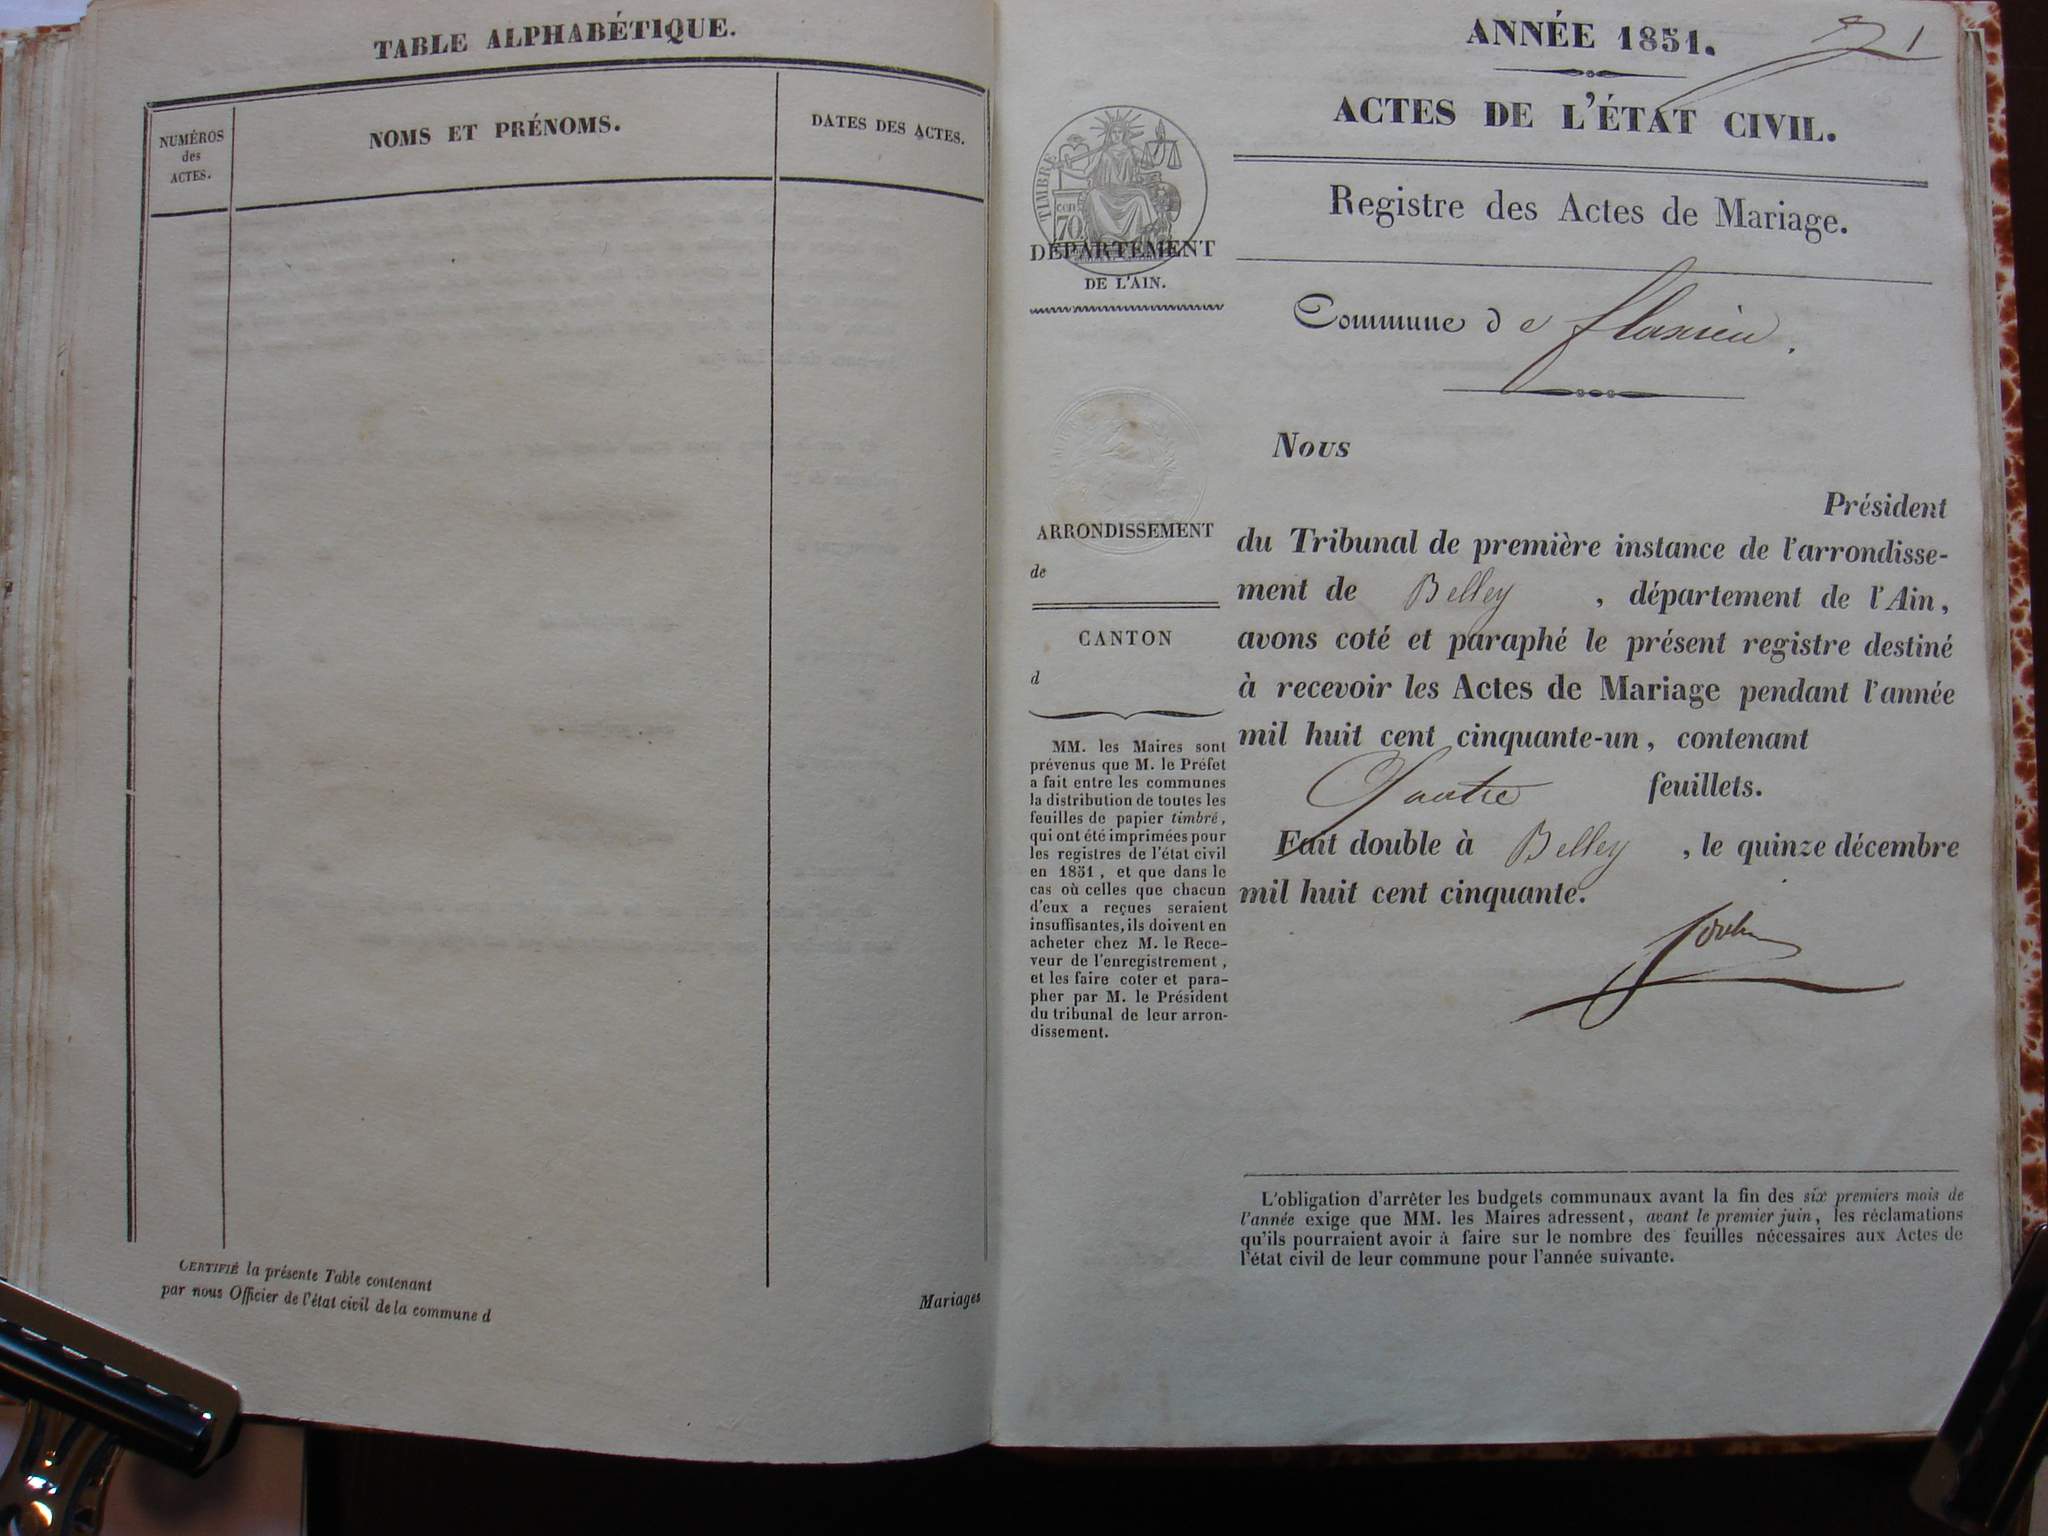 TABLE ALPHABÉTIQUE.
NUMÉROS
des
ACTES.
NOMS ET PRÉNOMS.
DATES DES ACTES.
CERTIFIÉ la présente Table contenant
Mariages
par nous Officier de l'état civil de la commune d
1
ANNÉE 1851.
ACTES DE L'ÉTAT CIVIL.
Registre des Actes de Mariage.
TIMBRE
cen
70
DÉPARTEMENT
DE L'AIN.
Commune de flaxieu.
ARRONDISSEMENT
de
CANTON
d
MM. les Maires sont
prévenus que M. le Préfet
a fait entre les communes
la distribution de toutes les
feuilles de papier timbré,
qui ont été imprimées pour
les registres de l'état civil
en 1851, et que dans le
cas où celles que chacun
d'eux a reçues seraient
insuffisantes, ils doivent en
acheter chez M. le Rece-
veur de l'enregistrement,
et les faire coter et para-
pher par M. le Président
du tribunal de leur arron-
dissement.
Nous
Président
du Tribunal de première instance de l'arrondisse-
ment de Belley, département de l'Ain,
avons coté et paraphé le présent registre destiné
à recevoir les Actes de Mariage pendant l'année
mil huit cent cinquante-un, contenant
Quatre feuillets.
Fait double à Belley, le quinze décembre
mil huit cent cinquante.
L'obligation d'arrêter les budgets communaux avant la fin des six premiers mois de
l'année exige que MM. les Maires adressent, avant le premier juin, les réclamations
qu'ils pourraient avoir à faire sur le nombre des feuilles nécessaires aux Actes de
l'état civil de leur commune pour l'année suivante.